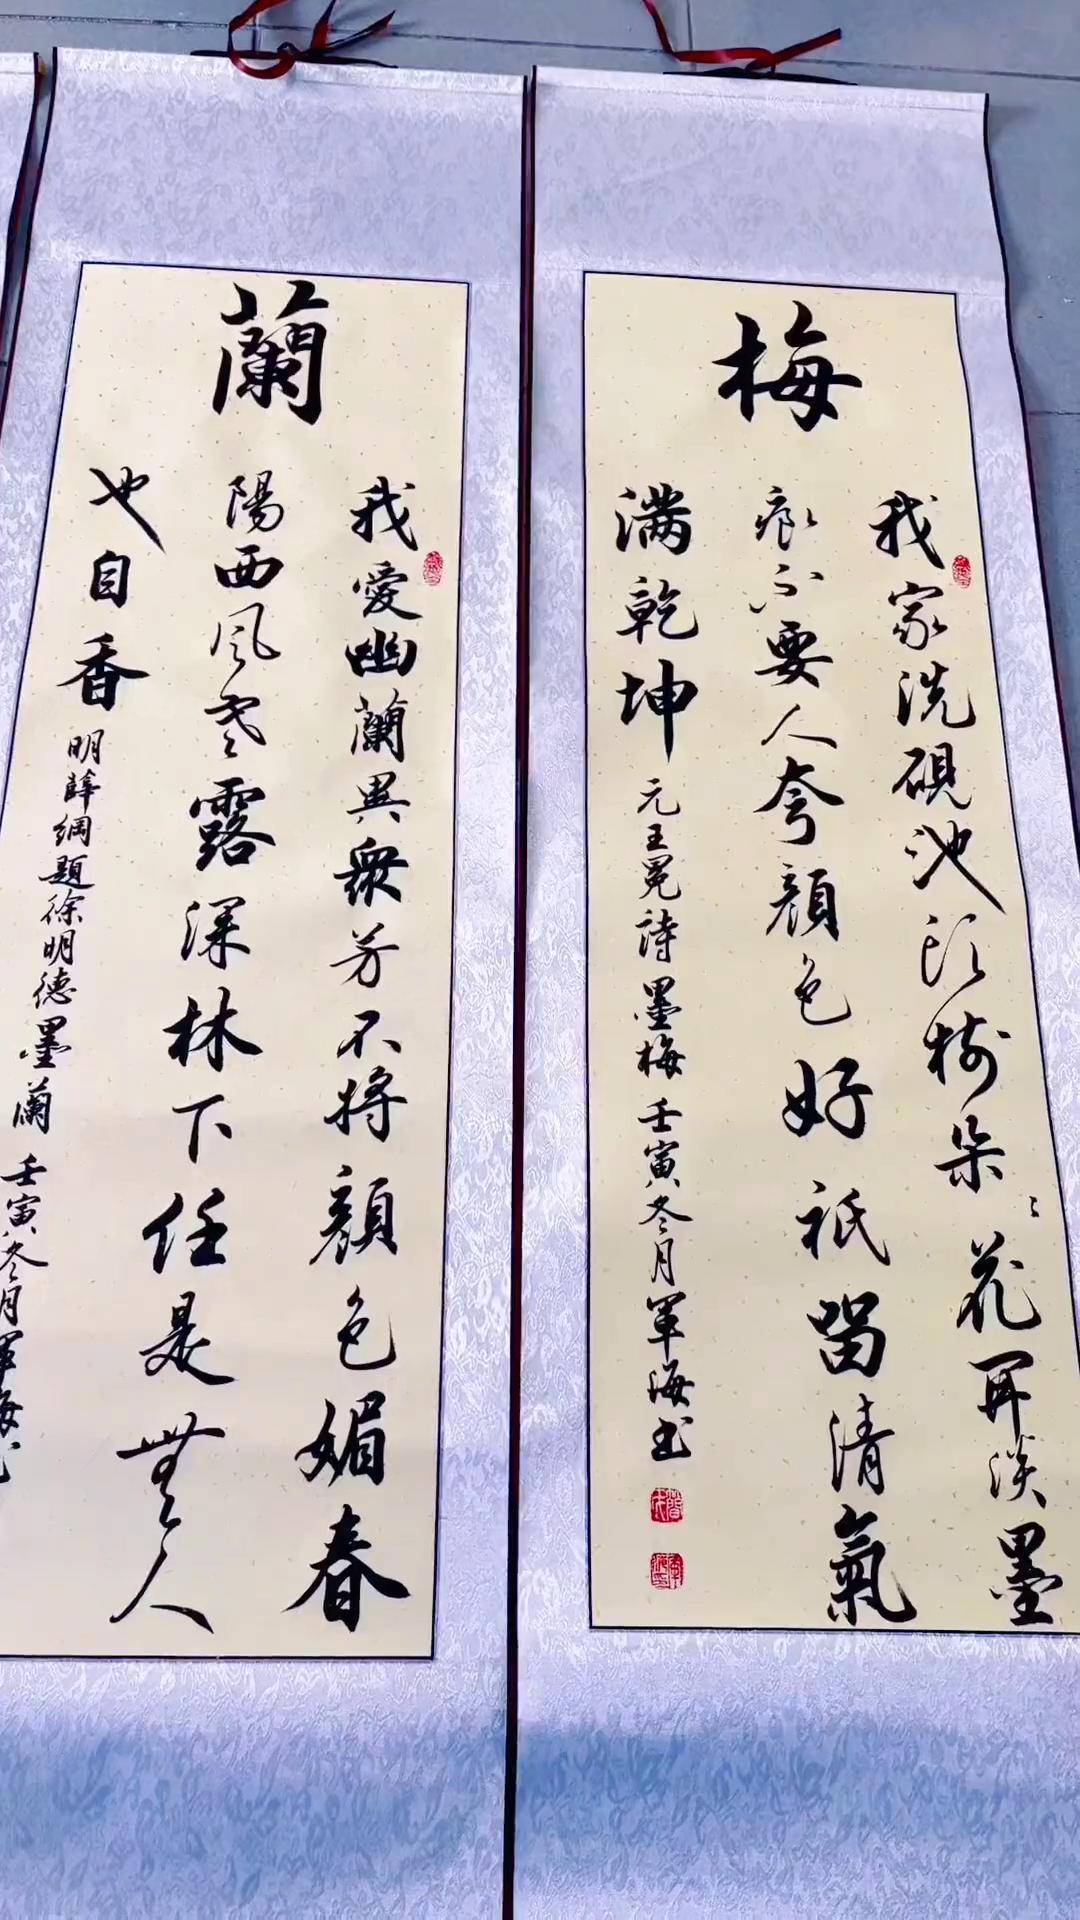 梅
我家洗硯池頭樹朵〻花開淡墨
痕不要人夸顏色好祇留清氣
满乾坤
元王冕詩墨梅 壬寅冬月軍海书
蘭
我愛幽蘭異衆芳不將顏色媚春
陽西風寒露深林下任是無人
也自香
明薛綱題徐明德墨蘭 壬寅冬月軍海书